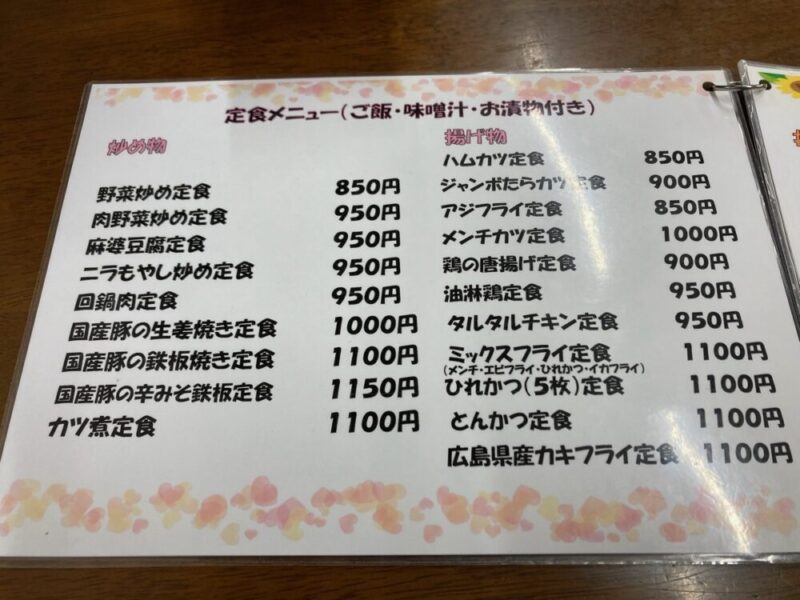 定食メニュー(ご飯・味噌汁・お漬物付き)
炒め物
野菜炒め定食 850円
肉野菜炒め定食 950円
麻婆豆腐定食 950円
ニラもやし炒め定食 950円
回鍋肉定食 950円
国産豚の生姜焼き定食 1000円
国産豚の鉄板焼き定食 1100円
国産豚の辛みそ鉄板定食 1150円
カツ煮定食 1100円
揚げ物
ハムカツ定食 850円
ジャンボたらカツ定食 900円
アジフライ定食 850円
メンチカツ定食 1000円
鶏の唐揚げ定食 900円
油淋鶏定食 950円
タルタルチキン定食 950円
ミックスフライ定食 1100円
(メンチ・エビフライ・ひれかつ・イカフライ)
ひれかつ(5枚)定食 1100円
とんかつ定食 1100円
広島県産カキフライ定食 1100円